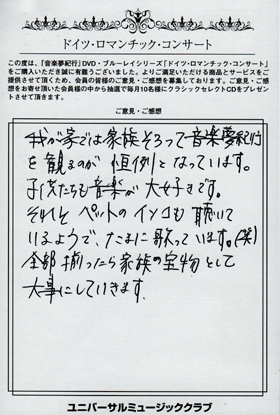 ドイツ・ロマンチック・コンサート
この度は、「音楽夢紀行」DVD・ブルーレイシリーズ「ドイツ・ロマンチック・コンサート」
をご購入いただき誠に有難うございました。よりご満足いただける商品とサービスをご
提供させて頂くため、会員の皆様のご意見・ご感想を募集しております。ご意見・ご感想
をお寄せ頂いた会員様の中から抽選で毎月10名様にクラシックセレクトCDをプレゼン
トさせて頂きます。
ご意見・ご感想
我が家では家族そろって音楽夢紀行
を観るのが恒例となっています。
子供たちも音楽が大好きです。
それとペットのインコも聴いて
いるようで、たまに歌っています。(笑)
全部揃ったら家族の宝物として
大事にしていきます。
ユニバーサルミュージッククラブ